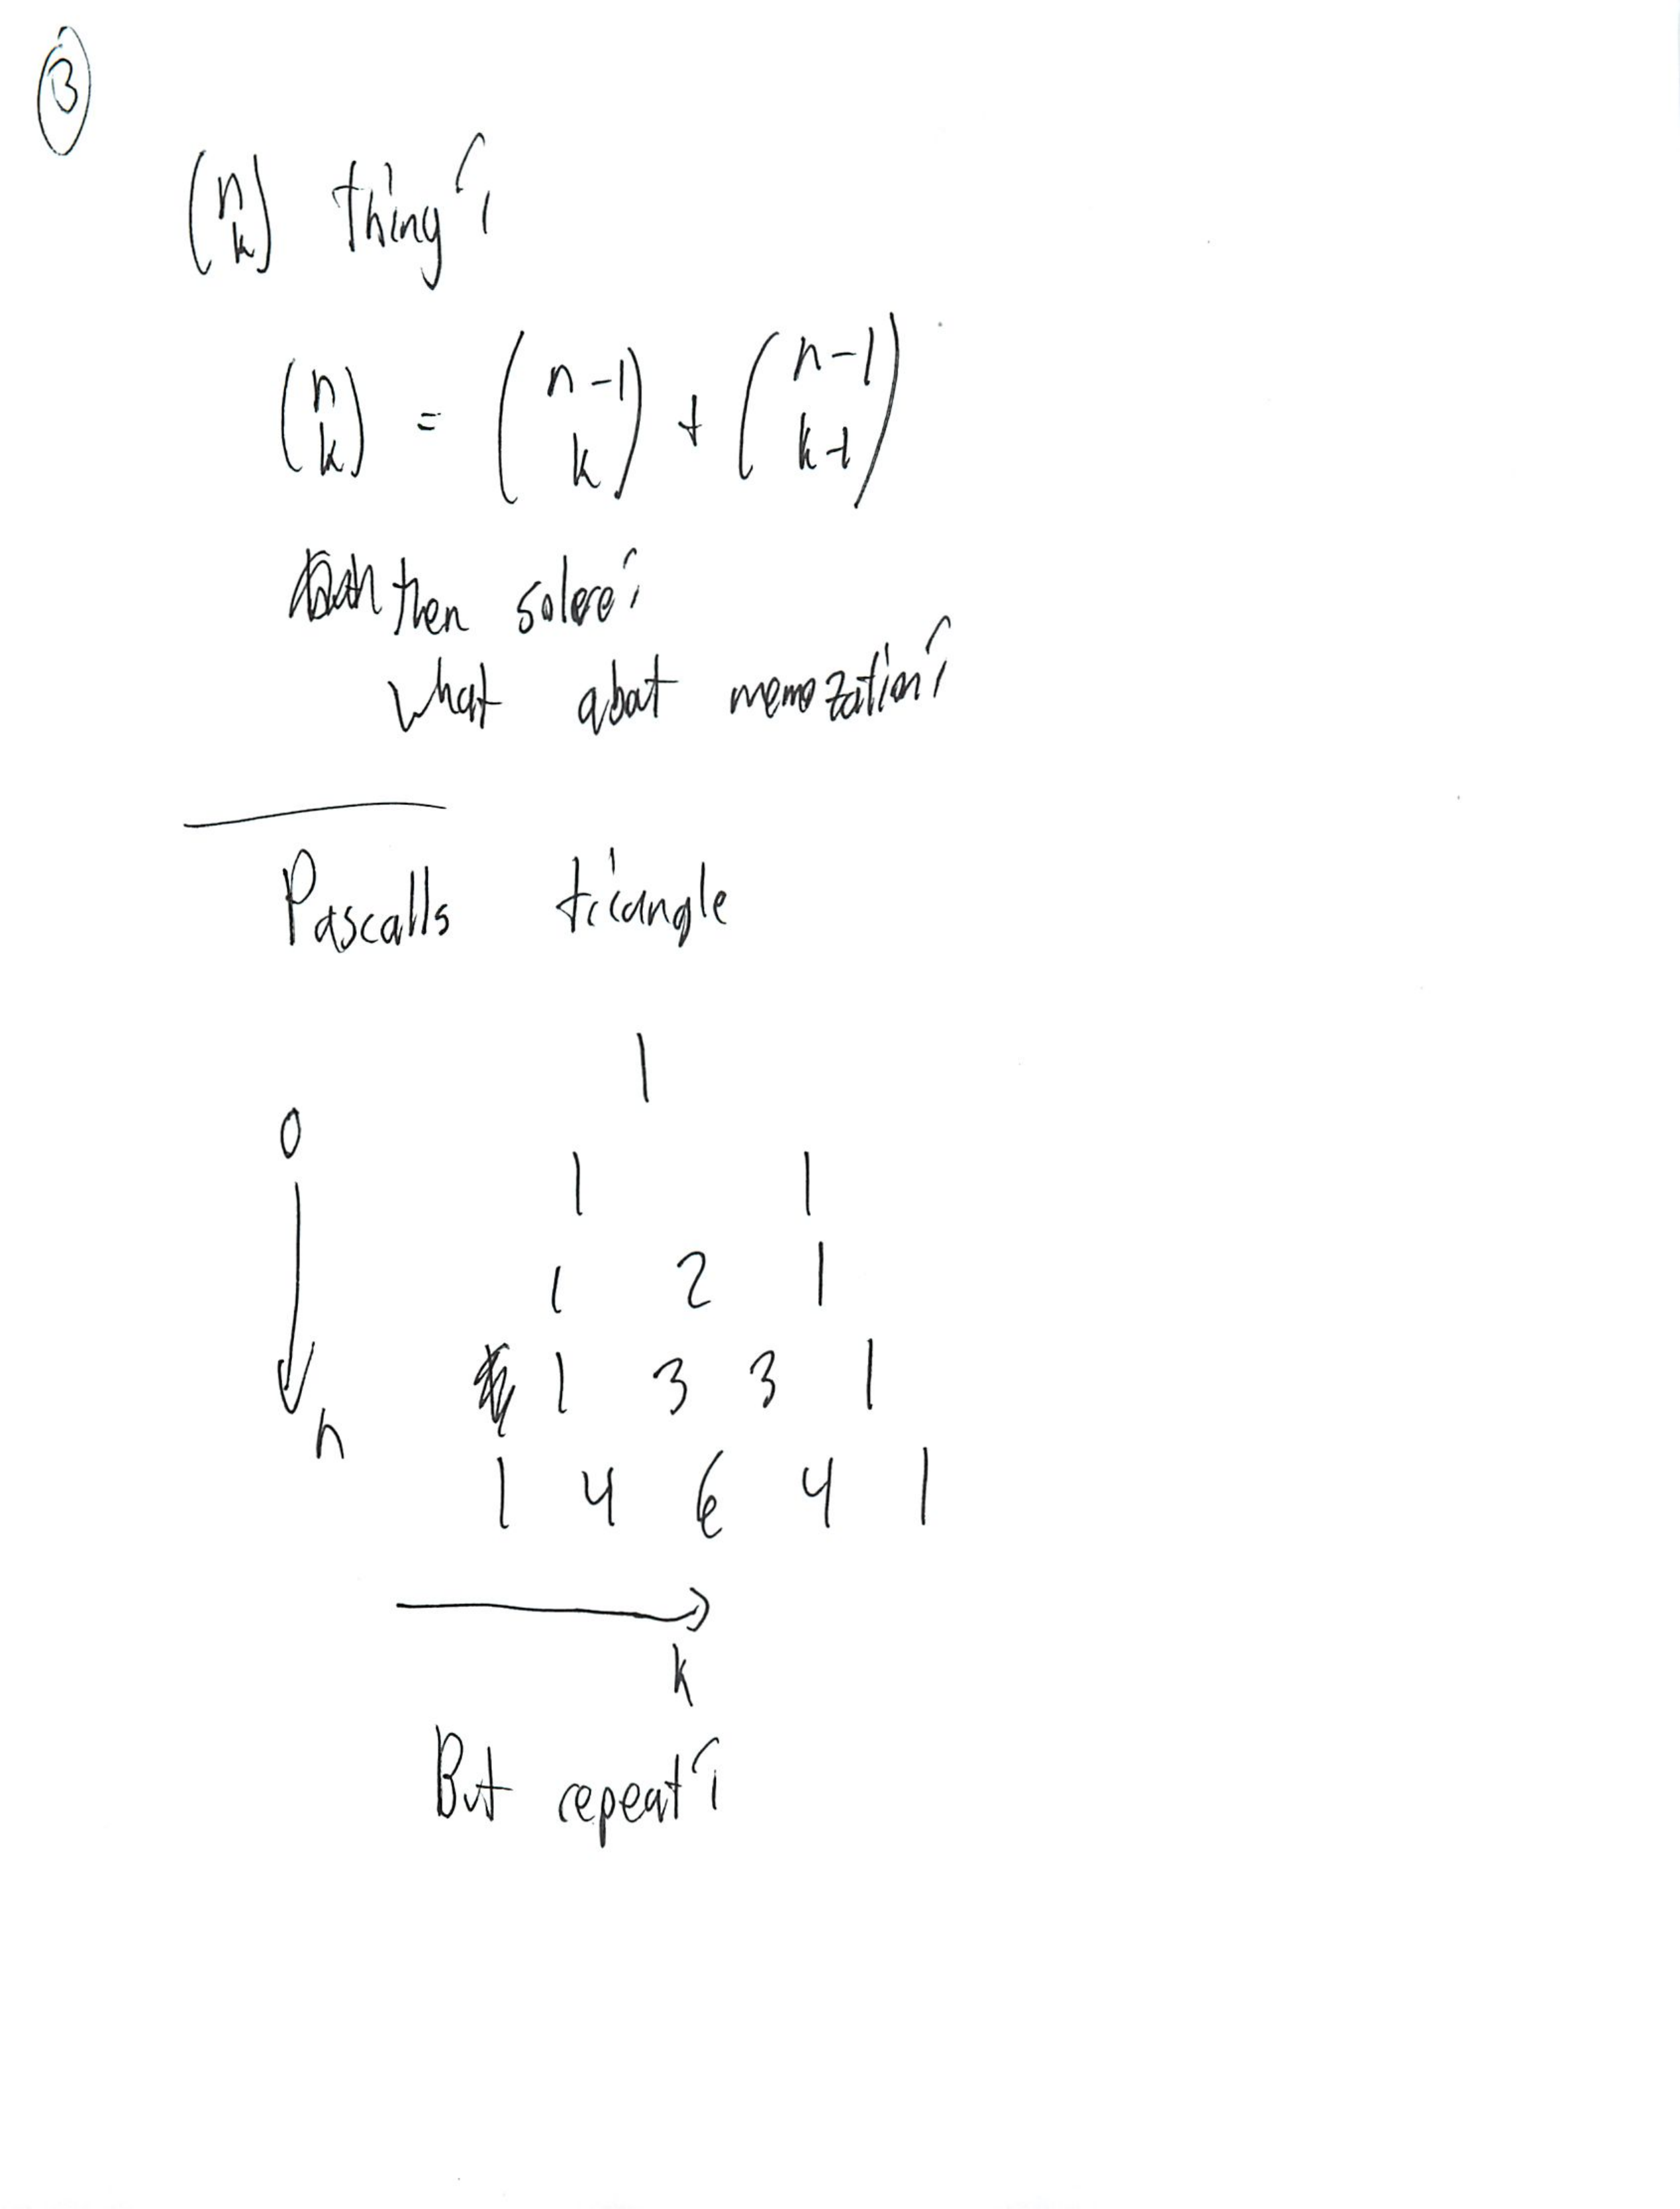 3
(n k) thing?
(n k) = (n-1 k) + (n-1 k-1)
then solve?
what about memozation?
Pascalls triangle
1
0
1 1
1 2 1
1 3 3 1
n
1 4 6 4 1
k
But repeat?